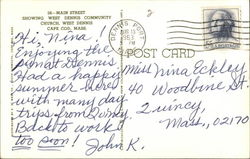 56-MAIN STREET
SHOWING WEST DENNIS COMMUNITY
CHURCH, WEST DENNIS
CAPE COD, MASS.
POST CARD
Hi, Nina,
Enjoying the
sun at Dennis
Had a happy
summer
with many day
trips from
Back to work
too soon!
John K.
Miss Nina Eckley
40 Woodbine St.
Quincy,
Mass., 02170